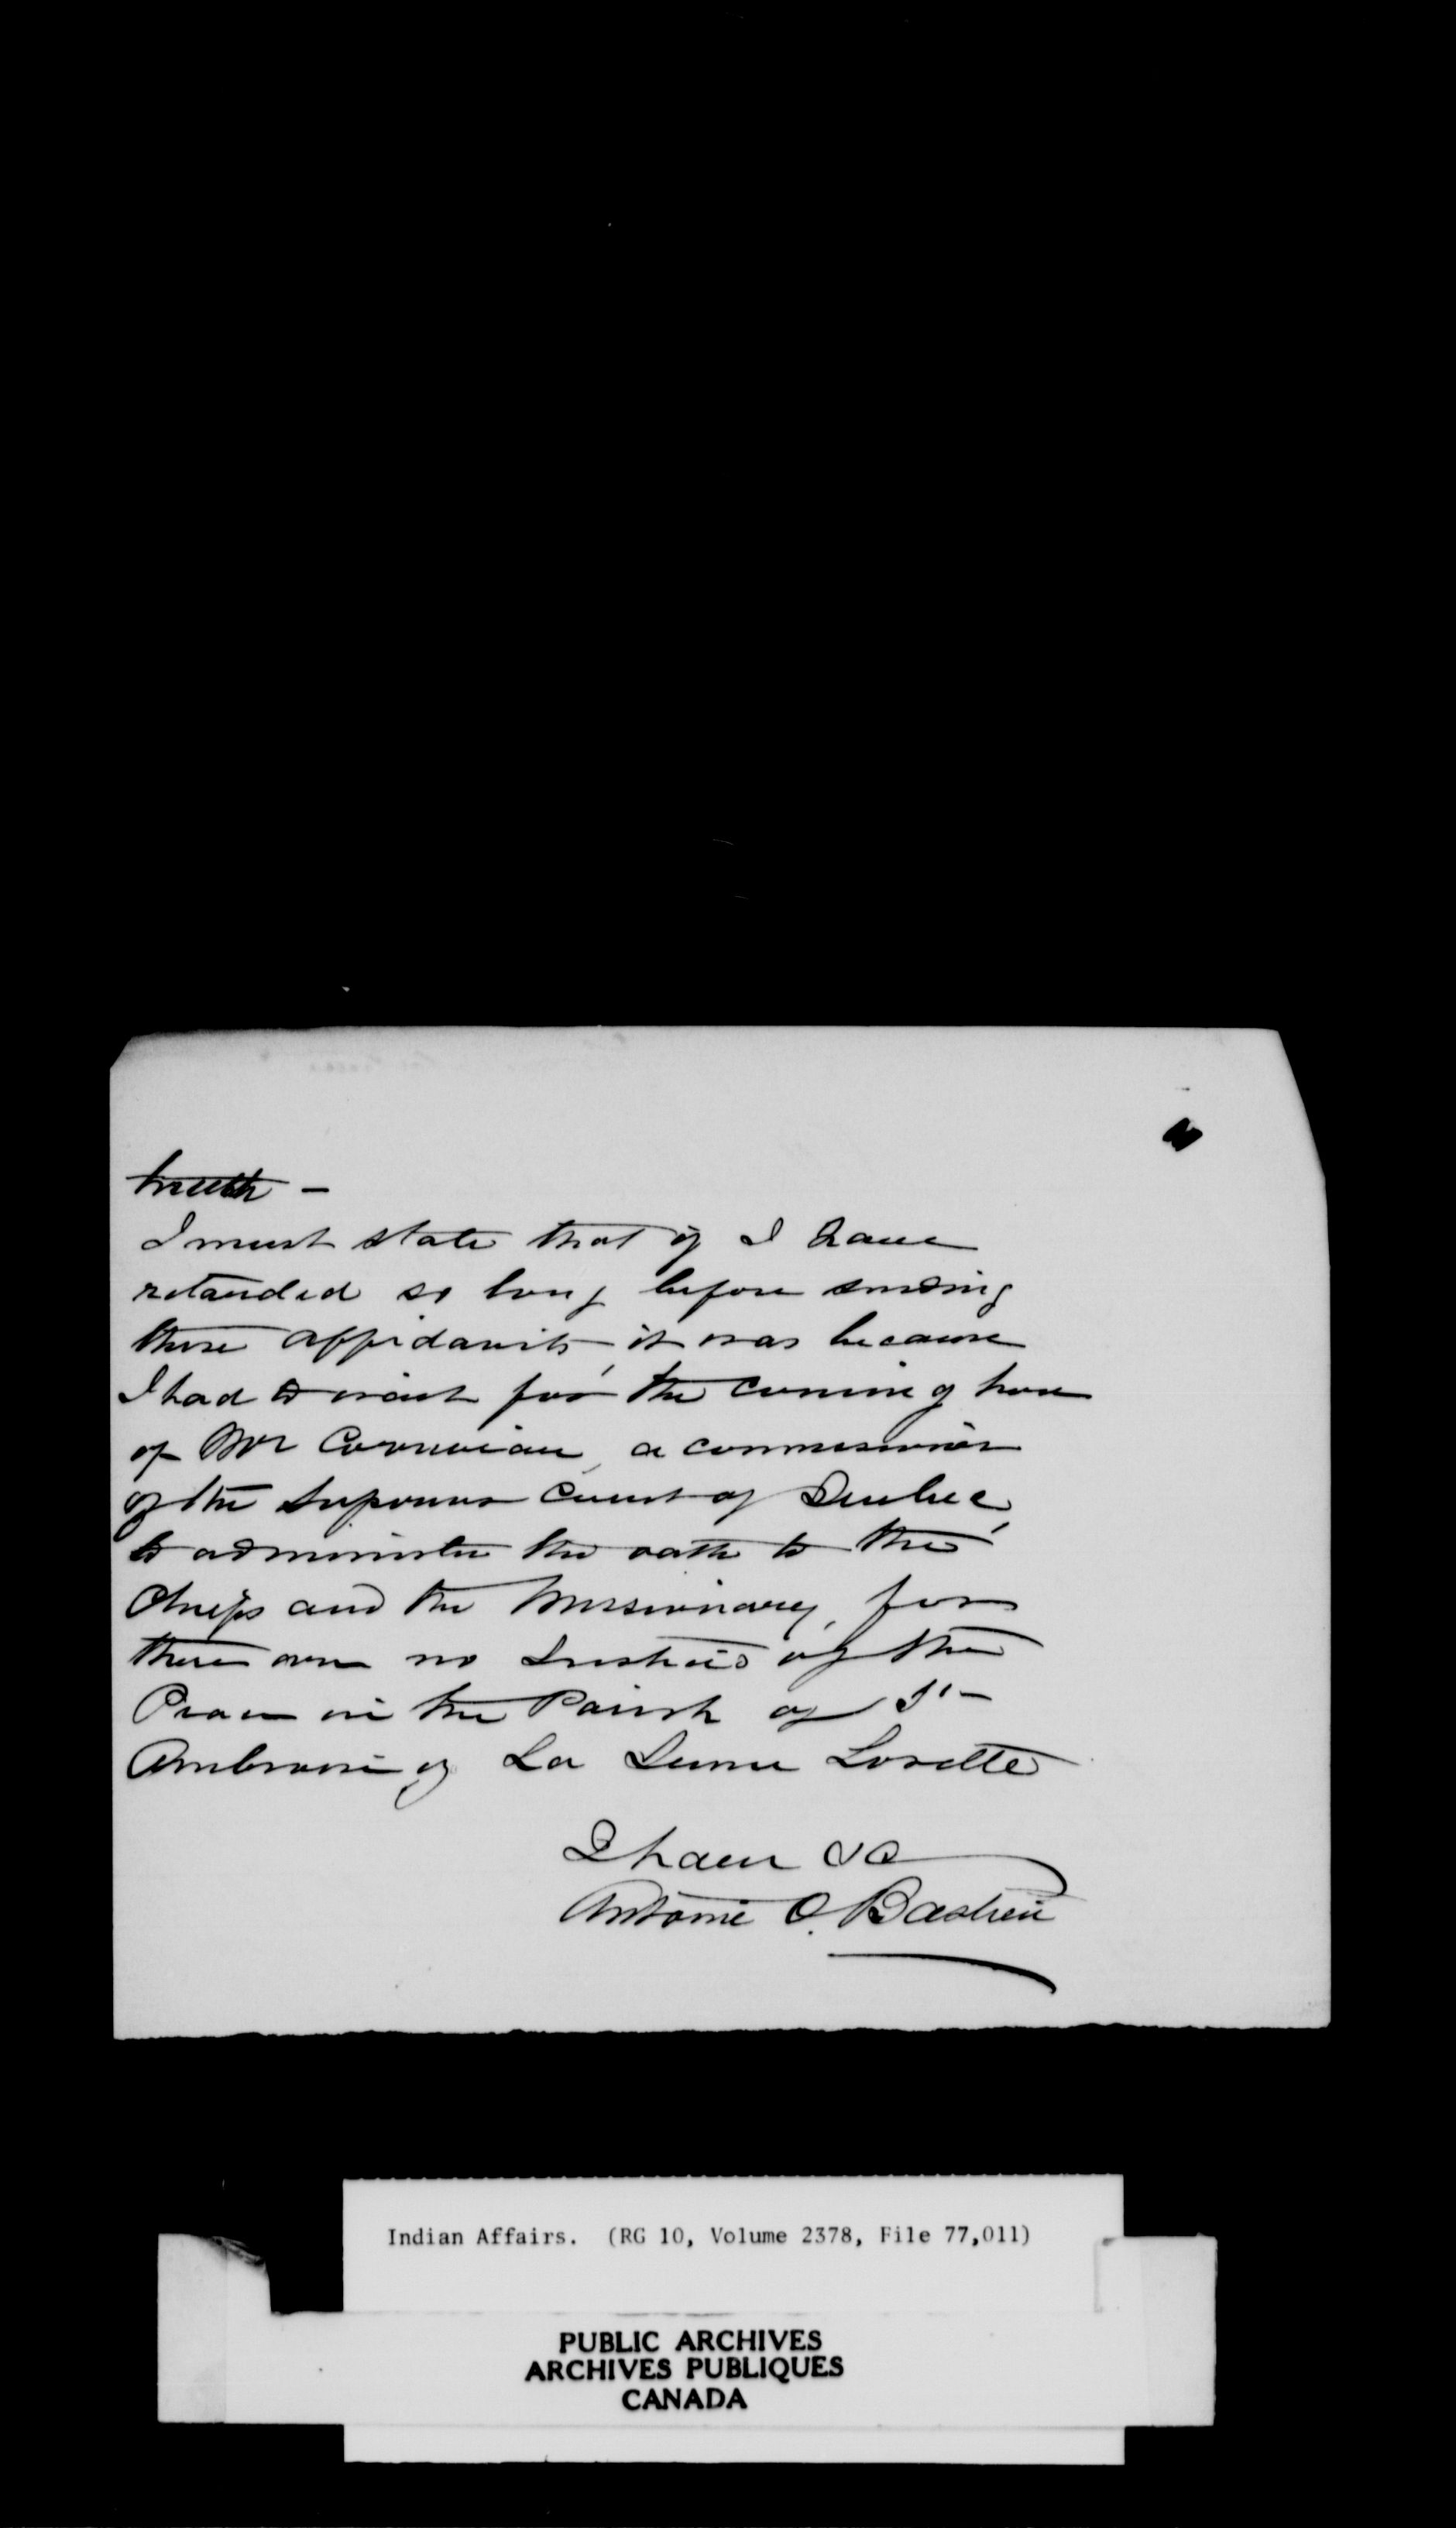 truth -
I must state that if I have
retarded so long before sending
these affidavits, it was because
I had to wait for the coming here
of Mr Corriveau, a commissioner
of the Superior Court of Quebec,
to administer the oath to the
Chiefs and the Missionary, for
there are no Justices of the
Peace in the Parish of St-
Ambroise of La Jeune Lorette
I have &c
Antoine O. Bastien
Indian Affairs. (RG 10, Volume 2378, File 77,011)
PUBLIC ARCHIVES
ARCHIVES PUBLIQUES
CANADA